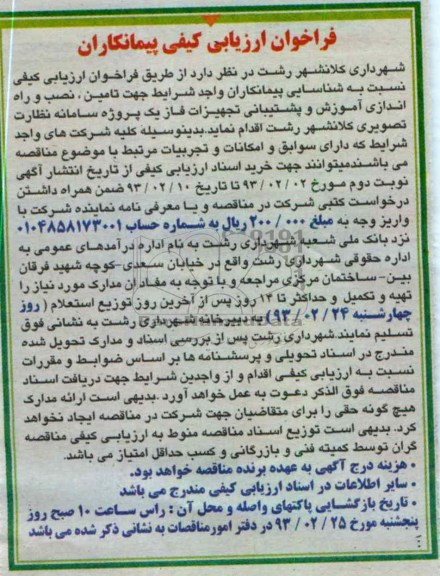 فراخوان ارزیابی کیفی پیمانکاران
شهرداری کلانشهر رشت در نظر دارد از طریق فراخوان ارزیابی کیفی
نسبت به شناسایی پیمانکاران واجد شرایط جهت تامین ، نصب و راه
اندازی آموزش و پشتیبانی تجهیزات فاز یک پروژه سامانه نظارت
تصویری کلانشهر رشت اقدام نماید.بدینوسیله کلیه شرکت های واجد
شرایط که دارای سوابق و امکانات و تجربیات مرتبط با موضوع مناقصه
می باشندمیتوانند جهت خرید اسناد ارزیابی کیفی از تاریخ انتشار آگهی
نوبت دوم مورخ ۹۳/۰۲/۰۲ تا تاریخ ۹۳/۰۲/۱۰ ضمن همراه داشتن
درخواست کتبی شرکت در مناقصه و یا معرفی نامه نماینده شرکت با
واریز وجه به مبلغ ۲۰۰/۰۰۰ ریال به شماره حساب ۰۱۰۴۸۵۸۱۷۳۰۰۱
نزد بانک ملی شعبه شهرداری رشت به نام اداره درآمدهای عمومی به
اداره حقوقی شهرداری رشت واقع در خیابان سعدی-کوچه شهید فرقان
بین- ساختمان مرکزی مراجعه و با توجه به مفاد آن مدارک مورد نیاز را
تهیه و تکمیل و حداکثر تا ۱۴ روز پس از آخرین روز توزیع استعلام ( روز
چهارشنبه ۹۳/۰۲/۲۴) به دبیرخانه شهرداری رشت به نشانی فوق
تسلیم نمایند.شهرداری رشت پس از بررسی اسناد و مدارک تحویل شده
مندرج در اسناد تحویلی و پرسشنامه ها بر اساس ضوابط و مقررات
نسبت به ارزیابی کیفی اقدام و از واجدین شرایط جهت دریافت اسناد
مناقصه فوق الذکر دعوت به عمل خواهد آورد .بدیهی است ارائه مدارک
هیچ گونه حقی را برای متقاضیان جهت شرکت در مناقصه ایجاد نخواهد
کرد. بدیهی است توزیع اسناد مناقصه منوط به ارزیابی کیفی مناقصه
گران توسط کمیته فنی و بازرگانی و کسب حداقل امتیاز می باشد.
• هزینه درج آگهی به عهده برنده مناقصه خواهد بود.
• سایر اطلاعات در اسناد ارزیابی کیفی مندرج می باشد
• تاریخ بازگشایی پاکتهای واصله و محل آن : راس ساعت ۱۰ صبح روز
پنجشنبه مورخ ۹۳/۰۲/۲۵ در دفتر امورمناقصات به نشانی ذکر شده می باشد